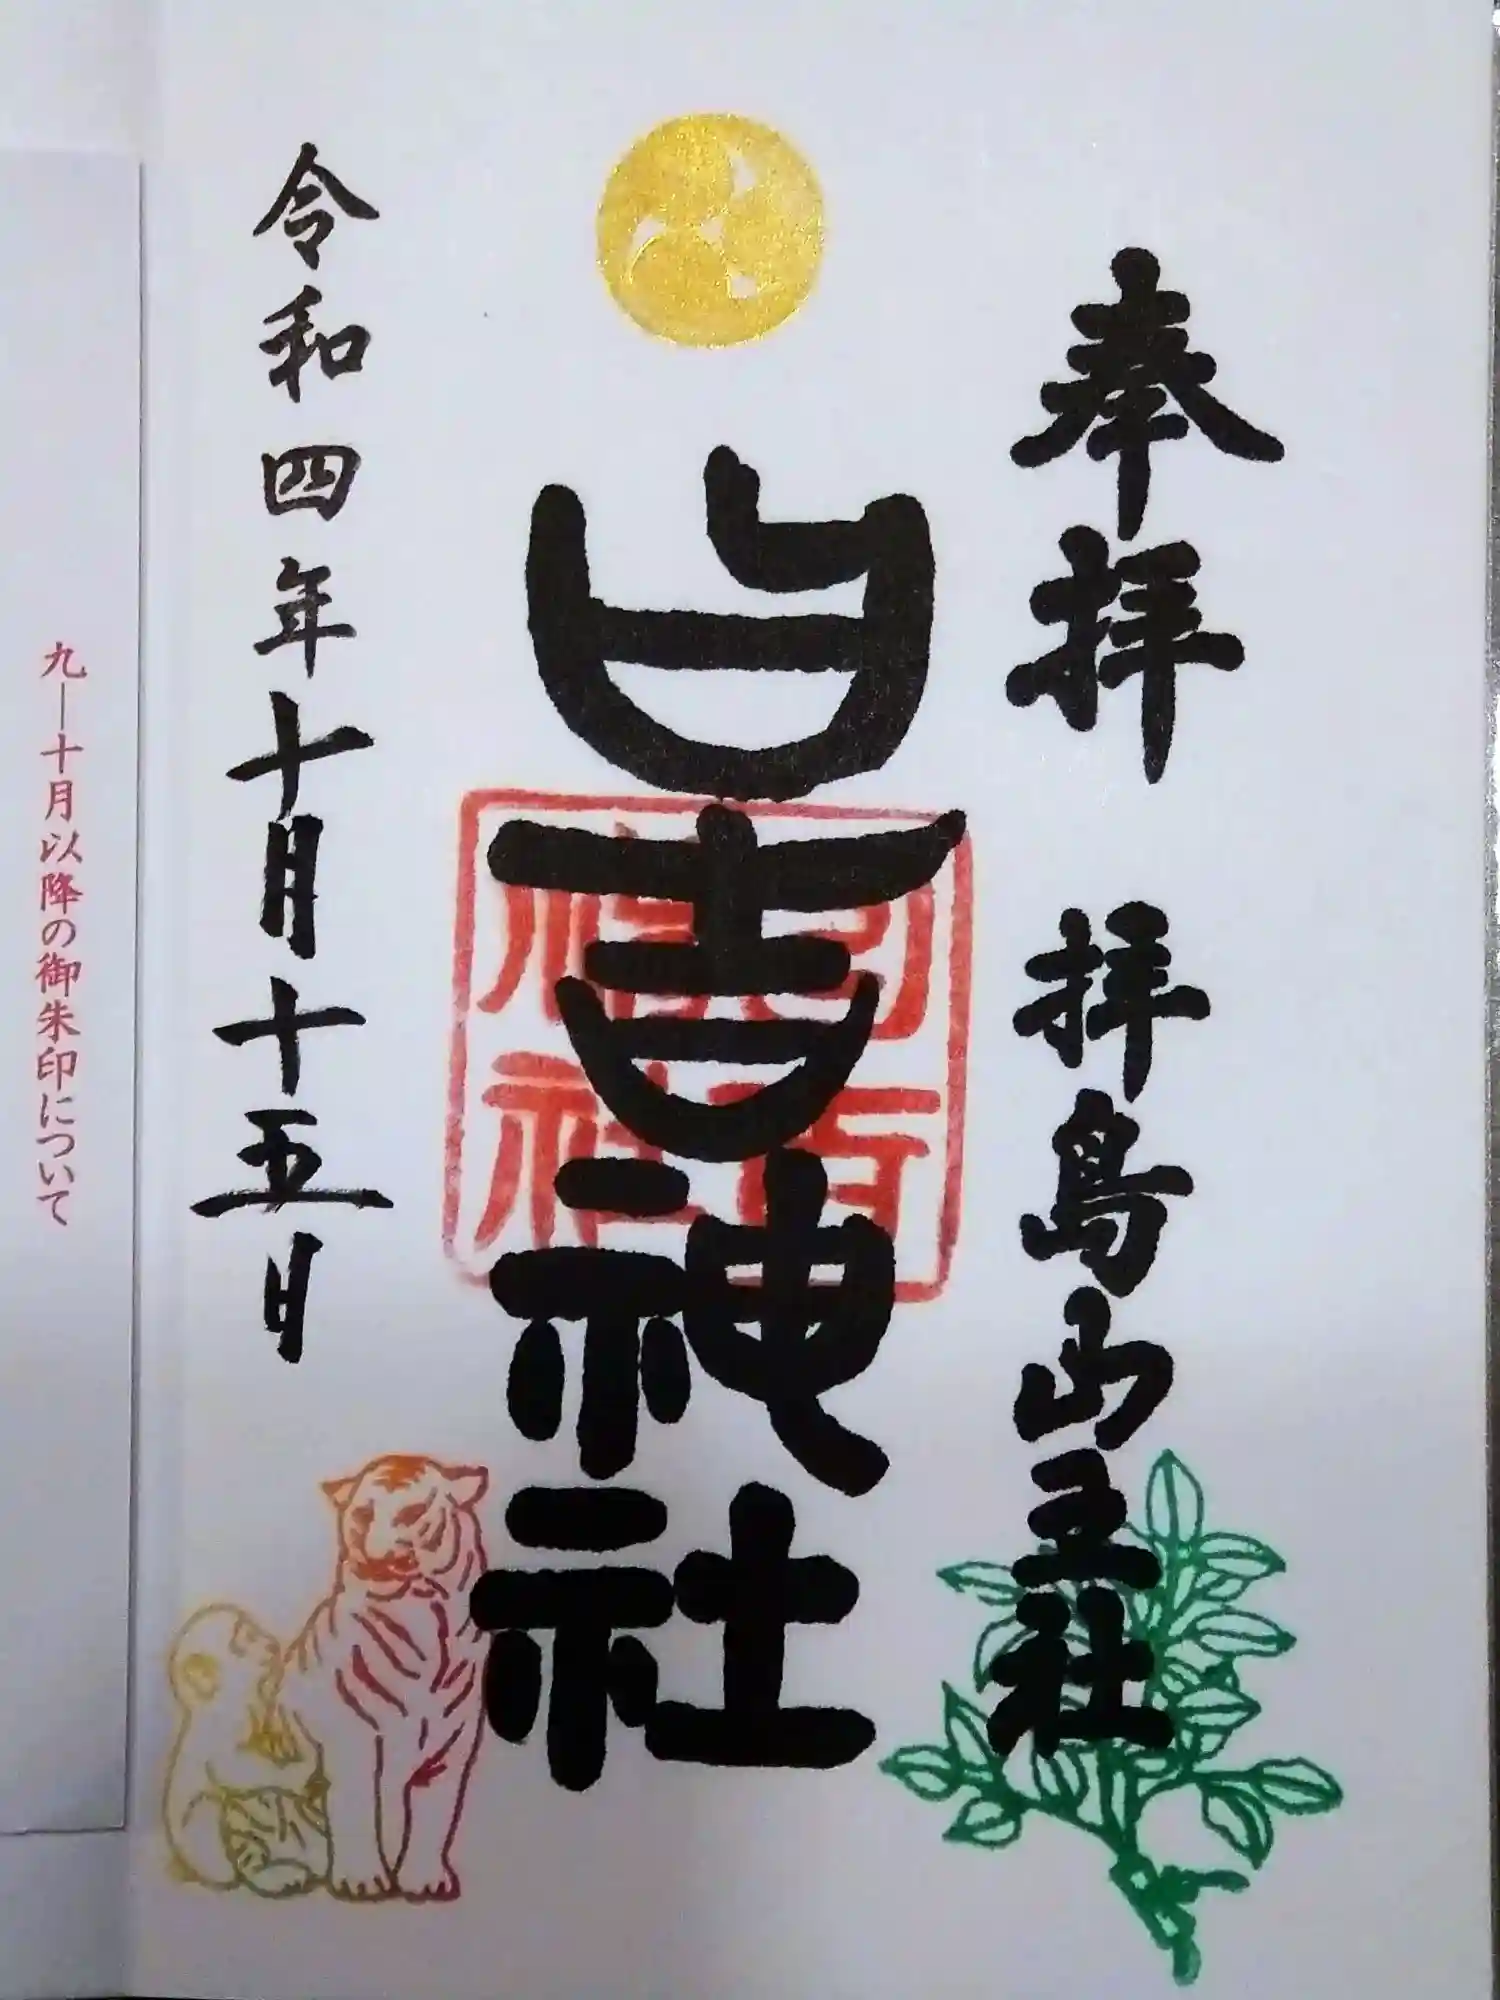 奉拝 拝島山王社
日吉神社
令和四年十月十五日
日吉神社
九―十月以降の御朱印について